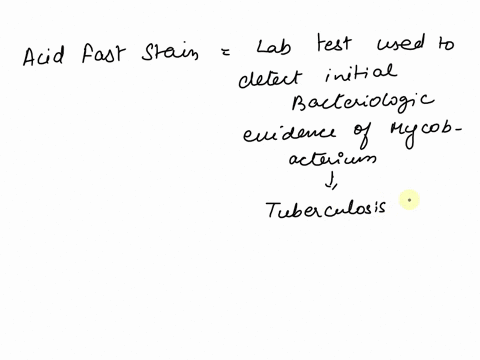 Acid Fast Stain = Lab test used to
detect initial
Bacteriologic
evidence of Mycob-
acterium
↓
Tuberculosis